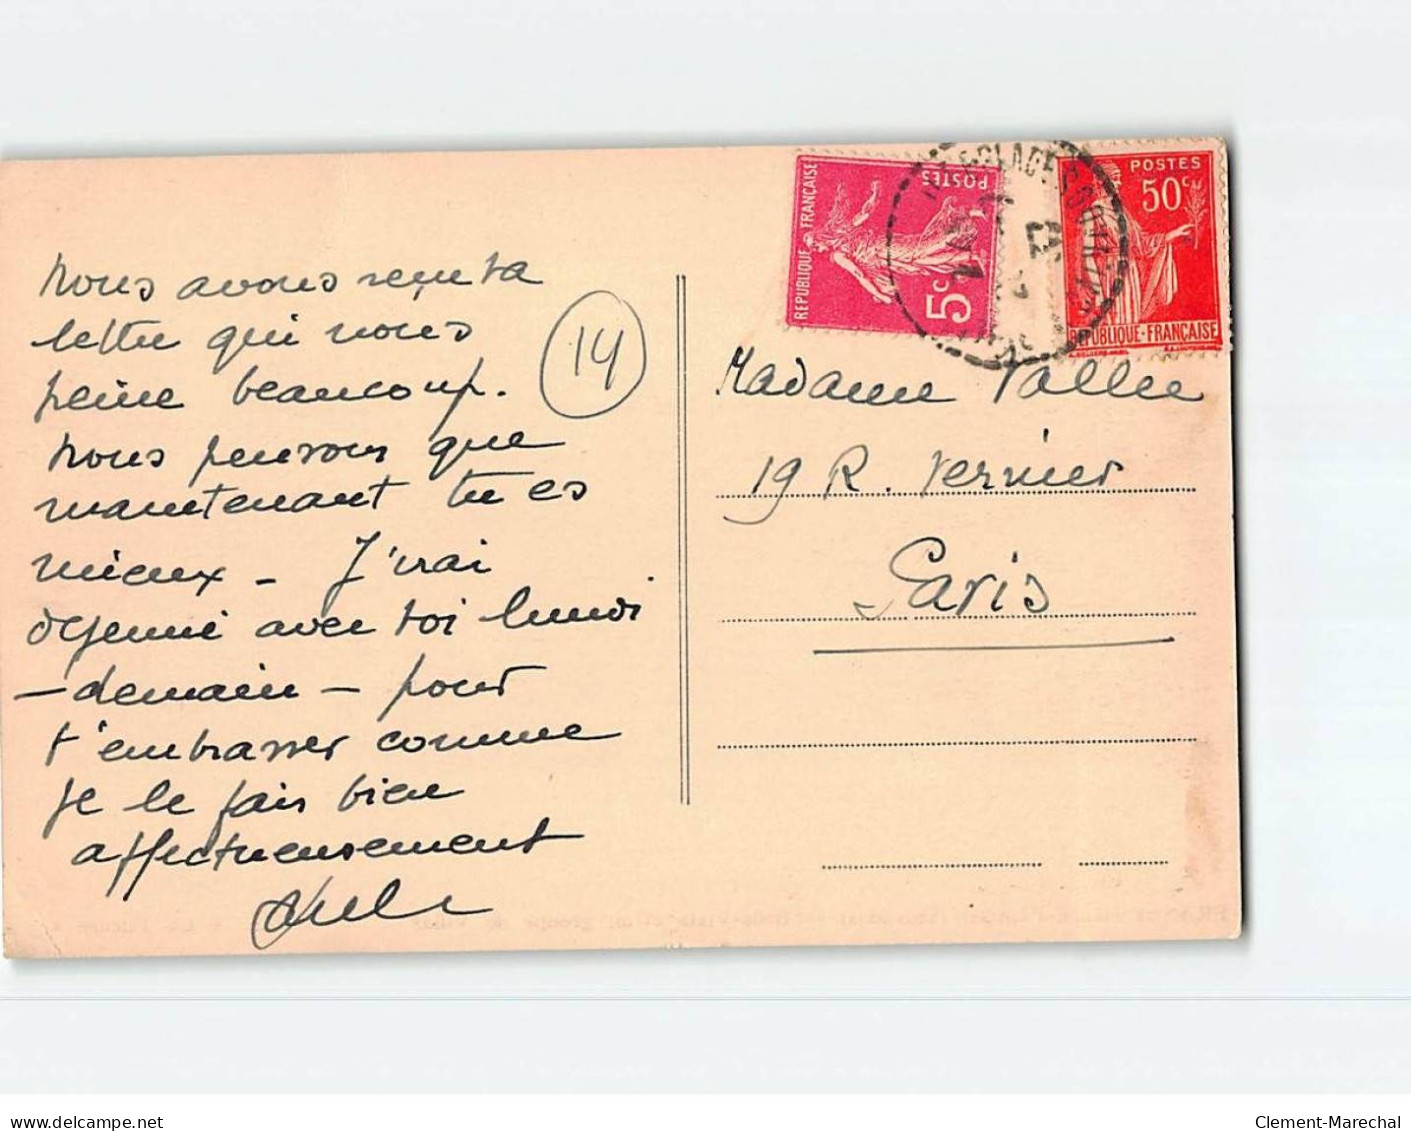 nous avons reçu ta
lettre qui nous
peine beaucoup.
nous pensons que
maintenant tu es
mieux - J'irai
déjeuner avec toi lundi
- demain - pour
t'embrasser comme
je le fais bien
affectueusement
14
REPUBLIQUE FRANÇAISE
POSTES
5c
POSTES
50c
REPUBLIQUE-FRANÇAISE
Madame Vallée
19 R. Vernier
Paris
www.delcampe.net
Clement-Marechal